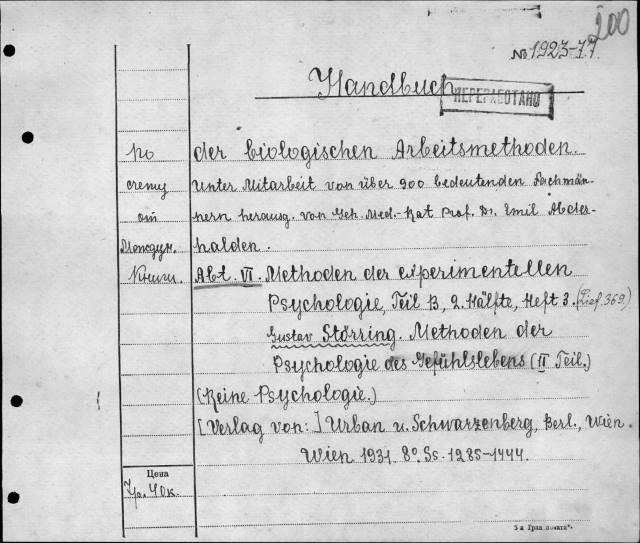 200
№ 1923-77
Handbuch
ПЕРЕРАБОТАНО
по der biologischen Arbeitsmethoden.
счету Unter Mitarbeit von über 900 bedeutenden Fachmän-
от nern herausg. von Geh. Med.-Rat Prof. Dr. Emil Abder-
Междун. halden.
Книги. Abt. VI. Methoden der experimentellen
Psychologie, Teil B, 2. Hälfte, Heft 3. (Lief. 369)
Gustav Störring. Methoden der
Psychologie des Gefühlslebens (II Teil.)
(Reine Psychologie.)
[Verlag von:] Urban u. Schwarzenberg, Berl., Wien.
Wien 1931. 8° Ss. 1285-1444.
Цена
7р. 40к.